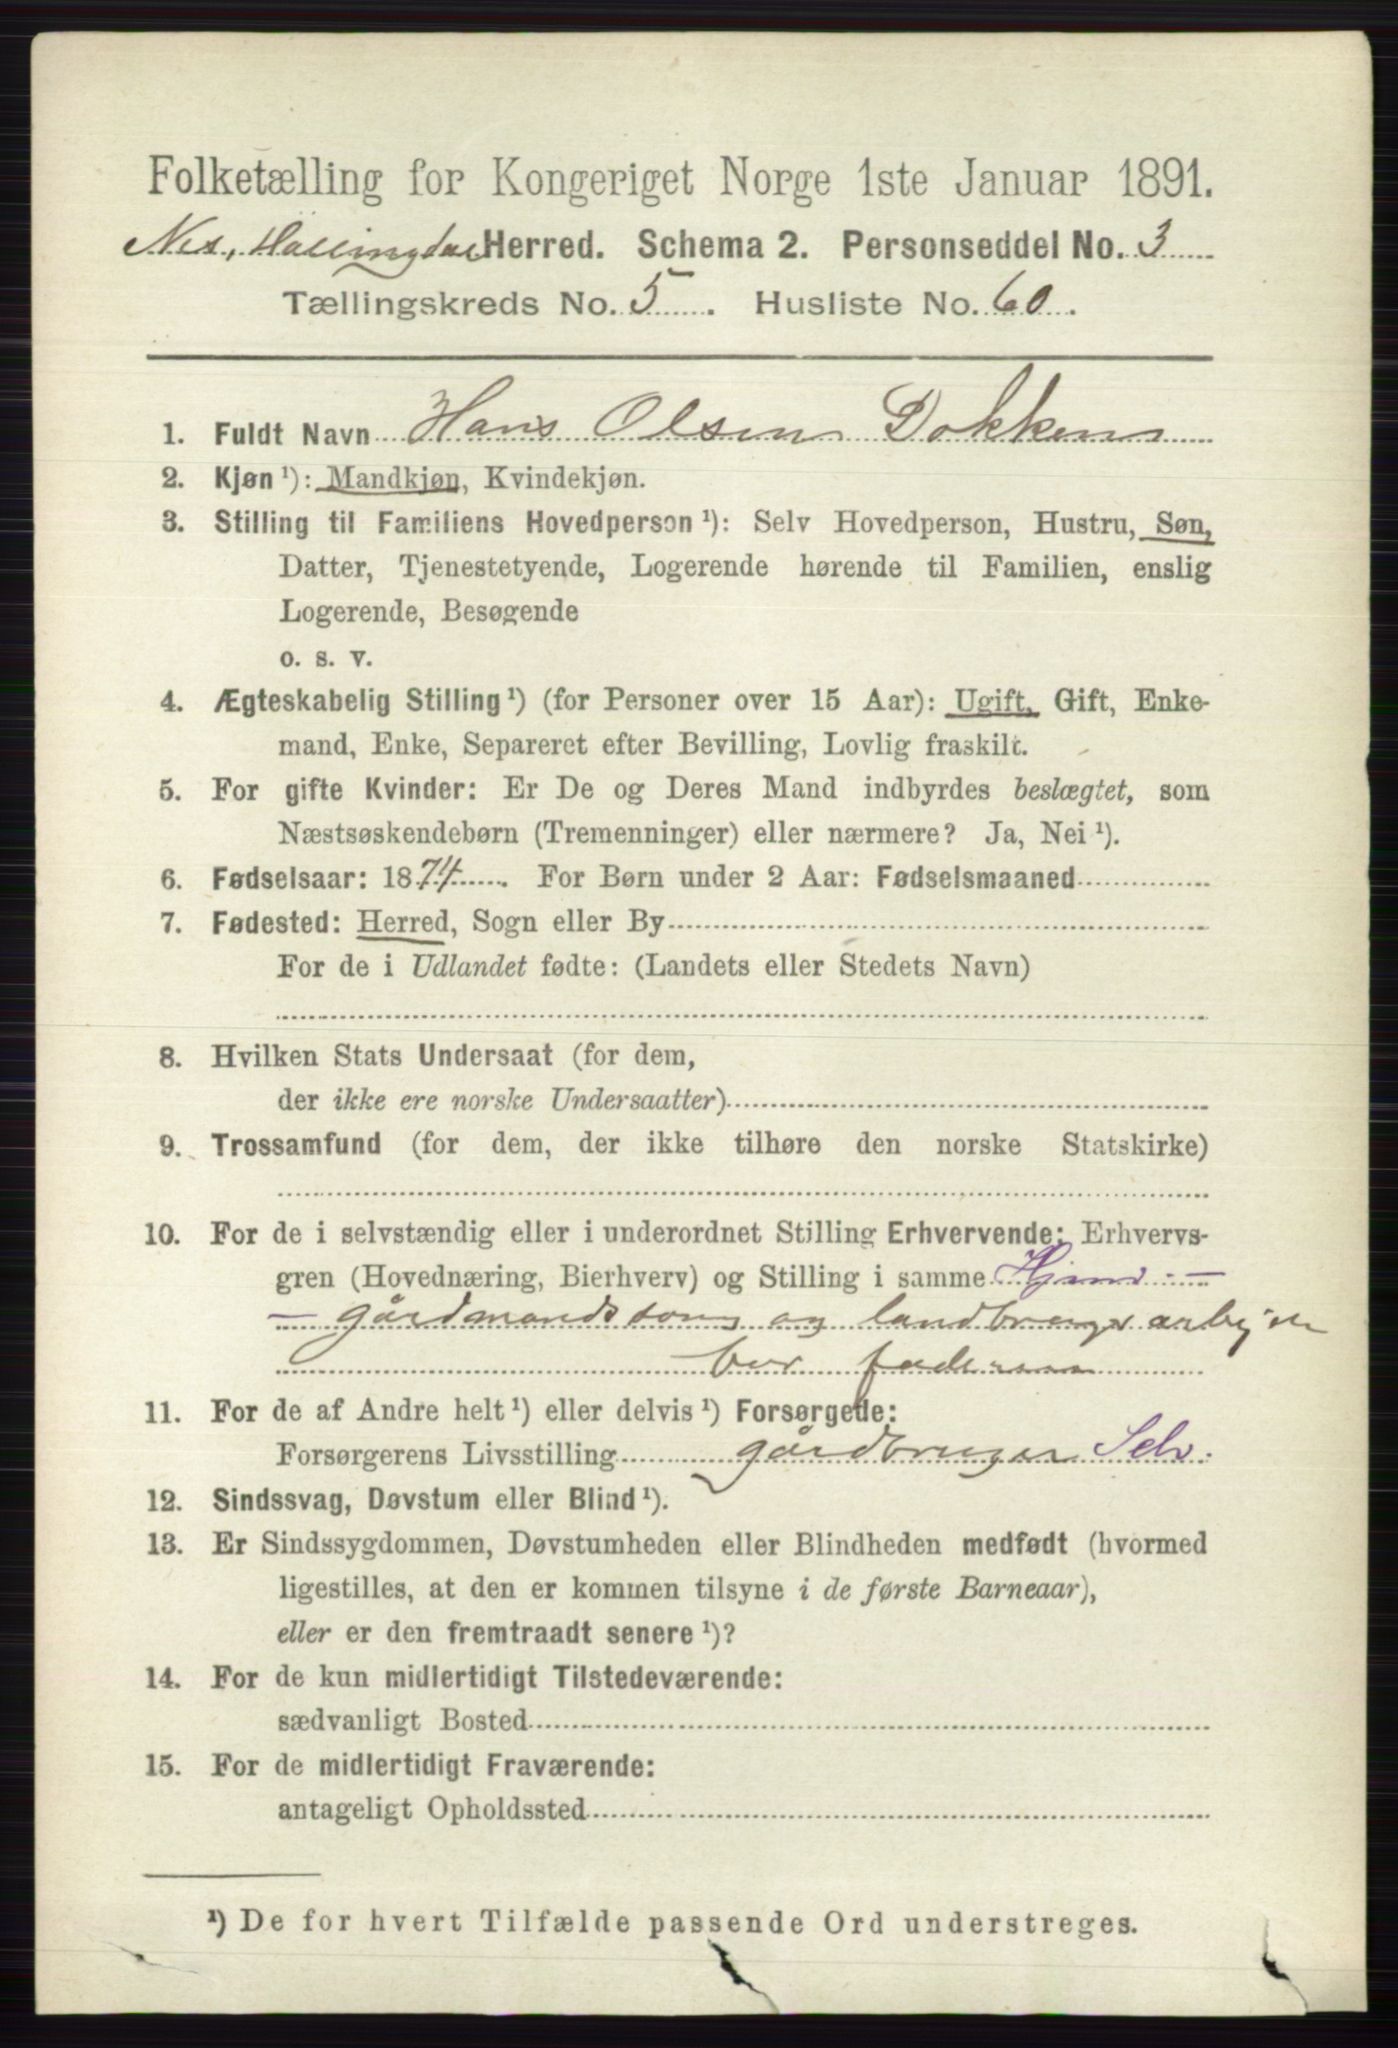 Folketælling for Kongeriget Norge 1ste Januar 1891.
Nes, Hallingdal Herred. Schema 2. Personseddel No. 3
Tællingskreds No. 5. Husliste No. 60.
1. Fuldt Navn Hans Olsen Dokken
2. Kjøn ¹): Mandkjøn, Kvindekjøn.
3. Stilling til Familiens Hovedperson ¹): Selv Hovedperson, Hustru, Søn,
Datter, Tjenestetyende, Logerende hørende til Familien, enslig
Logerende, Besøgende
o. s. v.
4. Ægteskabelig Stilling ¹) (for Personer over 15 Aar): Ugift, Gift, Enke-
mand, Enke, Separeret efter Bevilling, Lovlig fraskilt.
5. For gifte Kvinder: Er De og Deres Mand indbyrdes beslægtet, som
Næstsøskendebørn (Tremenninger) eller nærmere? Ja, Nei ¹).
6. Fødselsaar: 1874. For Børn under 2 Aar: Fødselsmaaned
7. Fødested: Herred, Sogn eller By
For de i Udlandet fødte: (Landets eller Stedets Navn)
8. Hvilken Stats Undersaat (for dem,
der ikke ere norske Undersaatter)
9. Trossamfund (for dem, der ikke tilhøre den norske Statskirke)
10. For de i selvstændig eller i underordnet Stilling Erhvervende: Erhvervs-
gren (Hovednæring, Bierhverv) og Stilling i samme
— gårdmandssøn og
faderen
11. For de af Andre helt ¹) eller delvis ¹) Forsørgede:
Forsørgerens Livsstilling gårdbruger Selv.
12. Sindssvag, Døvstum eller Blind ¹).
13. Er Sindssygdommen, Døvstumheden eller Blindheden medfødt (hvormed
ligestilles, at den er kommen tilsyne i de første Barneaar),
eller er den fremtraadt senere ¹)?
14. For de kun midlertidigt Tilstedeværende:
sædvanligt Bosted
15. For de midlertidigt Fraværende:
antageligt Opholdssted
¹) De for hvert Tilfælde passende Ord understreges.